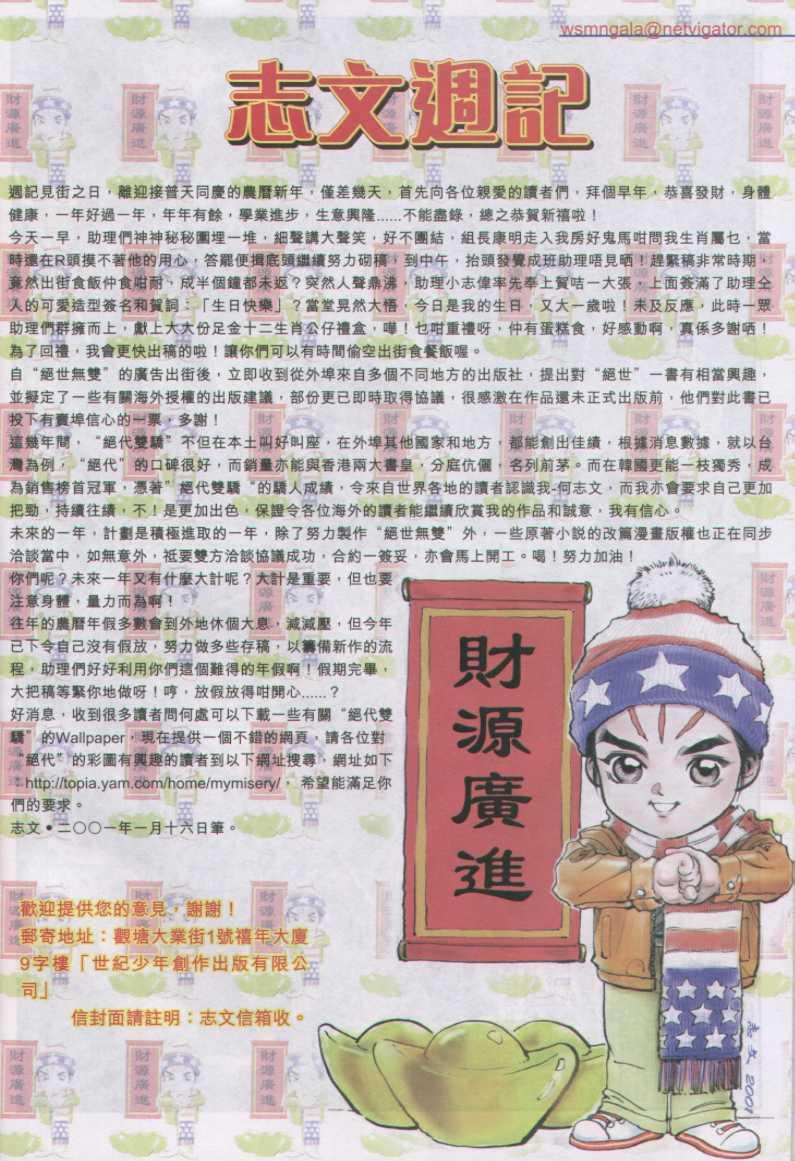 wsmngala@netvigator.com
志文週記
週記見街之日，離迎接普天同慶的農曆新年，僅差幾天，首先向各位親愛的讀者們，拜個早年，恭喜發財，身體
健康，一年好過一年，年年有餘，學業進步，生意興隆......不能盡錄，總之恭賀新禧啦！
今天一早，助理們神神秘秘圍埋一堆，細聲講大聲笑，好不團結，組長康明走入我房好鬼馬咁問我生肖屬乜，當
時還在R頭摸不著他的用心，答罷便揖底頭繼續努力砌稿，到中午，抬頭發覺成班助理唔見晒！趕緊稿非常時期，
竟然出街食飯仲食咁耐，成半個鐘都未返？突然人聲鼎沸，助理小志偉率先奉上賀咭一大張，上面簽滿了助理仝
人的可愛造型簽名和賀詞：「生日快樂」？當堂晃然大悟，今日是我的生日，又大一歲啦！未及反應，此時一眾
助理們群擁而上，獻上大大份足金十二生肖公仔禮盒，嘩！乜咁重禮呀，仲有蛋糕食，好感動啊，真係多謝晒！
為了回禮，我會更快出稿的啦！讓你們可以有時間偷空出街食餐飯喔。
自“絕世無雙”的廣告出街後，立即收到從外埠來自多個不同地方的出版社，提出對“絕世”一書有相當興趣，
並擬定了一些有關海外授權的出版建議，部份更已即時取得協議，很感激在作品還未正式出版前，他們對此書已
投下有賣埠信心的一票，多謝！
這幾年間，“絕代雙驕”不但在本土叫好叫座，在外埠其他國家和地方，都能創出佳績，根據消息數據，就以台
灣為例，“絕代”的口碑很好，而銷量亦能與香港兩大書皇，分庭伉儷，名列前茅。而在韓國更能一枝獨秀，成
為銷售榜首冠軍，憑著”絕代雙驕“的驕人成績，令來自世界各地的讀者認識我-何志文，而我亦會要求自己更加
把勁，持續往績，不！是更加出色，保證令各位海外的讀者能繼續欣賞我的作品和誠意，我有信心。
未來的一年，計劃是積極進取的一年，除了努力製作“絕世無雙”外，一些原著小説的改篇漫畫版權也正在同步
洽談當中，如無意外，祇要雙方洽談協議成功，合約一簽妥，亦會馬上開工。喝！努力加油！
你們呢？未來一年又有什麼大計呢？大計是重要，但也要
注意身體，量力而為啊！
往年的農曆年假多數會到外地休個大息，減減壓，但今年
已下令自己沒有假放，努力做多些存稿，以籌備新作的流
程，助理們好好利用你們這個難得的年假啊！假期完畢，
大把稿等緊你地做呀！哼，放假放得咁開心......？
好消息，收到很多讀者問何處可以下載一些有關“絕代雙
驕”的Wallpaper，現在提供一個不錯的網頁，請各位對
“絕代”的彩圖有興趣的讀者到以下網址搜尋，網址如下
：http://topia.yam.com/home/mymisery/，希望能滿足你
們的要求。
志文•二〇〇一年一月十六日筆。
財源廣進
歡迎提供您的意見，謝謝！
郵寄地址：觀塘大業街1號禧年大廈
9字樓「世紀少年創作出版有限公
司」
信封面請註明：志文信箱收。
志文 2001